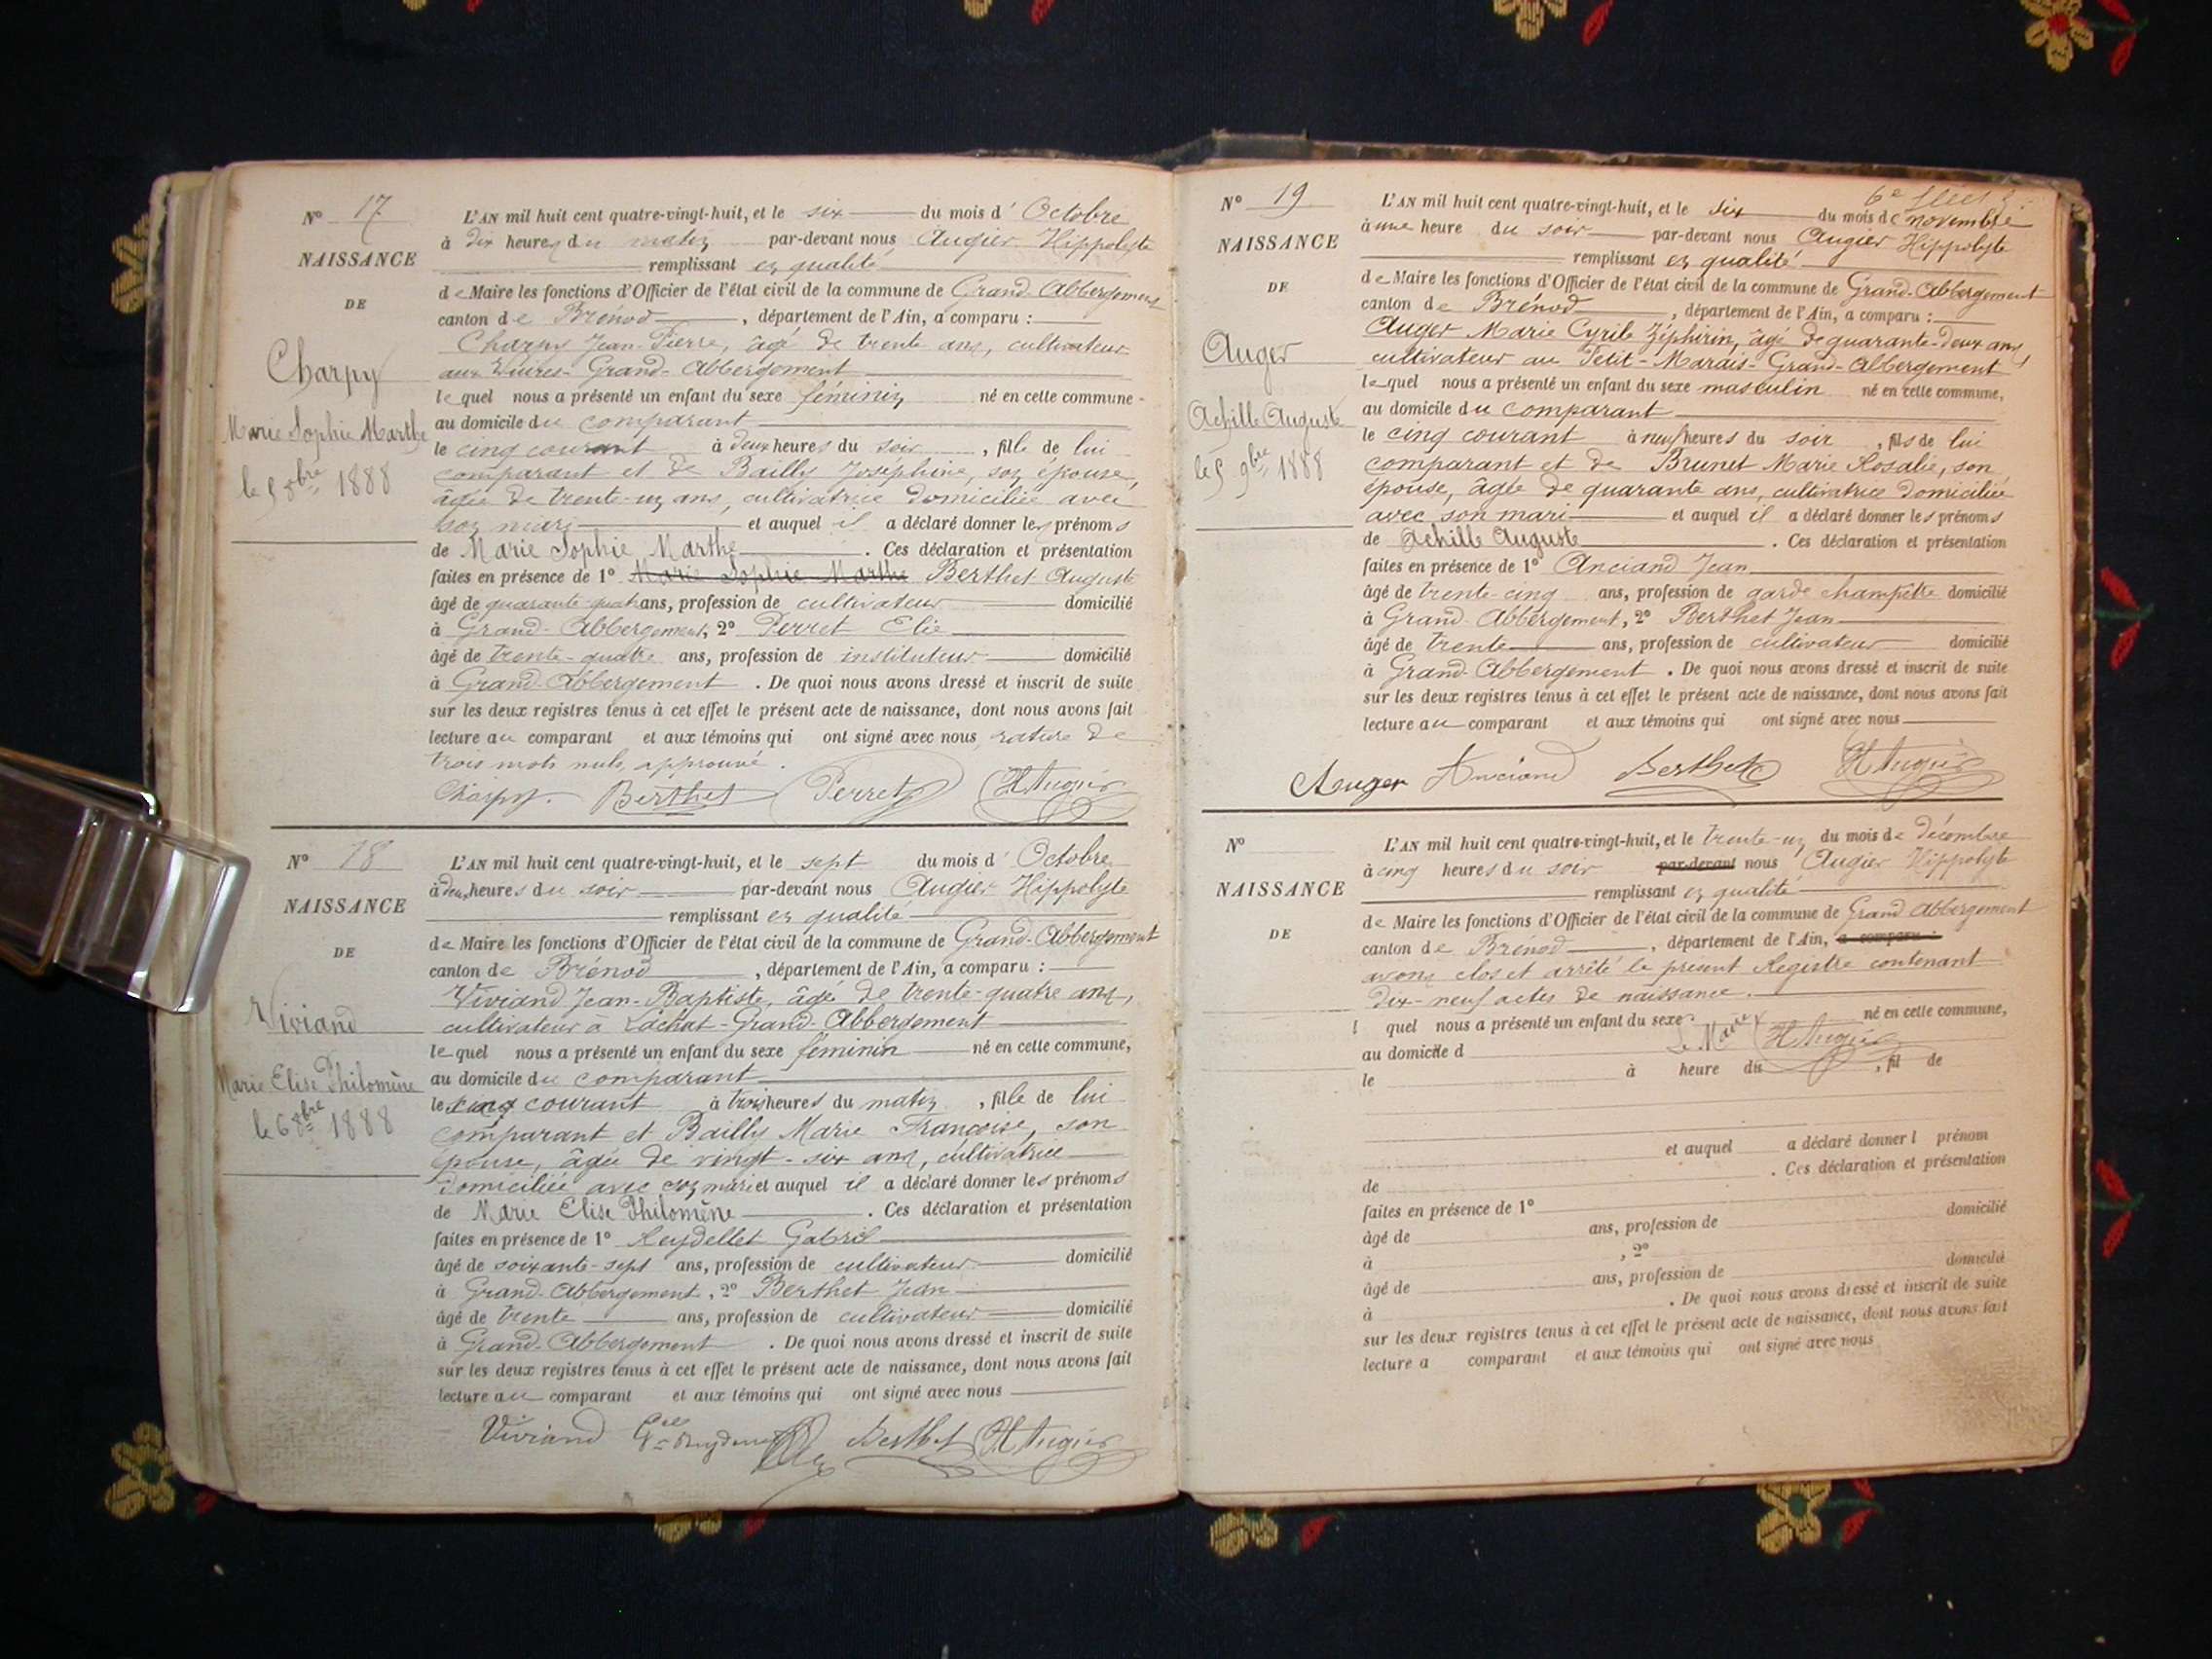 N° 17
NAISSANCE
DE
Charpy
Marie Sophie Marthe
le 5 8bre 1888
L'AN mil huit cent quatre-vingt-huit, et le six du mois d'Octobre
à dix heures du matin par-devant nous Augier Hippolyte
remplissant en qualité
de Maire les fonctions d'Officier de l'état civil de la commune de Grand-Abbergement
canton de Brénod, département de l'Ain, a comparu :
Charpy Jean-Pierre, âgé de trente ans, cultivateur
aux Grand-Abbergement
lequel nous a présenté un enfant du sexe féminin né en cette commune
au domicile du comparant
le cinq courant à deux heures du soir, fille de lui
comparant et de Bailly Joséphine, son épouse,
âgée de trente-un ans, cultivatrice domiciliée avec
son mari et auquel il a déclaré donner les prénoms
de Marie Sophie Marthe. Ces déclaration et présentation
faites en présence de 1° Marie Sophie Marthe Berthet Auguste
âgé de quarante-quatre ans, profession de cultivateur domicilié
à Grand-Abbergement, 2° Perret Elie
âgé de trente-quatre ans, profession de instituteur domicilié
à Grand-Abbergement. De quoi nous avons dressé et inscrit de suite
sur les deux registres tenus à cet effet le présent acte de naissance, dont nous avons fait
lecture au comparant et aux témoins qui ont signé avec nous, rature de
trois mots nuls approuvé.
Charpy. Berthet Perret H Augier
N° 18
NAISSANCE
DE
Viviand
Marie Elise Philomène
le 6 8bre 1888
L'AN mil huit cent quatre-vingt-huit, et le sept du mois d'Octobre
à deux heures du soir par-devant nous Augier Hippolyte
remplissant en qualité
de Maire les fonctions d'Officier de l'état civil de la commune de Grand-Abbergement
canton de Brénod, département de l'Ain, a comparu :
Viviand Jean-Baptiste, âgé de trente-quatre ans,
cultivateur à Lachat-Grand-Abbergement
lequel nous a présenté un enfant du sexe féminin né en cette commune,
au domicile du comparant
le courant à trois heures du matin, fille de lui
comparant et Bailly Marie Françoise, son
épouse, âgée de vingt-six ans, cultivatrice
domiciliée avec son mari et auquel il a déclaré donner les prénoms
de Marie Elise Philomène. Ces déclaration et présentation
faites en présence de 1° Reydellet Gabriel
âgé de soixante-sept ans, profession de cultivateur domicilié
à Grand-Abbergement, 2° Berthet Jean
âgé de trente ans, profession de cultivateur domicilié
à Grand-Abbergement. De quoi nous avons dressé et inscrit de suite
sur les deux registres tenus à cet effet le présent acte de naissance, dont nous avons fait
lecture au comparant et aux témoins qui ont signé avec nous
Viviand Berthet H Augier
N° 19
NAISSANCE
DE
Auger
Achille Auguste
le 5 9bre 1888
L'AN mil huit cent quatre-vingt-huit, et le six du mois de novembre
à une heure du soir par-devant nous Augier Hippolyte
remplissant en qualité
de Maire les fonctions d'Officier de l'état civil de la commune de Grand-Abbergement
canton de Brénod, département de l'Ain, a comparu :
Auger Marie Cyrile Zéphirin, âgé de quarante-deux ans,
cultivateur au Petit-Marais-Grand-Abbergement
lequel nous a présenté un enfant du sexe masculin né en cette commune,
au domicile du comparant
le cinq courant à neuf heures du soir, fils de lui
comparant et de Brunet Marie Rosalie, son
épouse, âgée de quarante ans, cultivatrice domiciliée
avec son mari et auquel il a déclaré donner les prénoms
de Achille Auguste. Ces déclaration et présentation
faites en présence de 1° Anciand Jean
âgé de trente-cinq ans, profession de garde champêtre domicilié
à Grand-Abbergement, 2° Berthet Jean
âgé de trente ans, profession de cultivateur domicilié
à Grand-Abbergement. De quoi nous avons dressé et inscrit de suite
sur les deux registres tenus à cet effet le présent acte de naissance, dont nous avons fait
lecture au comparant et aux témoins qui ont signé avec nous
Auger Anciand Berthet H Augier
N°
NAISSANCE
DE
L'AN mil huit cent quatre-vingt-huit, et le trente-un du mois de décembre
à cinq heures du soir par-devant nous Augier Hippolyte
remplissant en qualité
de Maire les fonctions d'Officier de l'état civil de la commune de Grand Abbergement
canton de Brénod, département de l'Ain, a comparu :
avons clos et arrêté le présent Registre contenant
dix-neuf actes de naissance.
l quel nous a présenté un enfant du sexe né en cette commune,
Le Maire H Augier
au domicile d
le à heure du , fil de
et auquel a déclaré donner l prénom
de . Ces déclaration et présentation
faites en présence de 1°
âgé de ans, profession de domicilié
à , 2°
âgé de ans, profession de domicilié
à . De quoi nous avons dressé et inscrit de suite
sur les deux registres tenus à cet effet le présent acte de naissance, dont nous avons fait
lecture a comparant et aux témoins qui ont signé avec nous